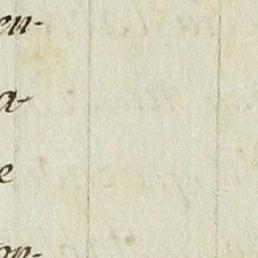 en-
a-
e
on-